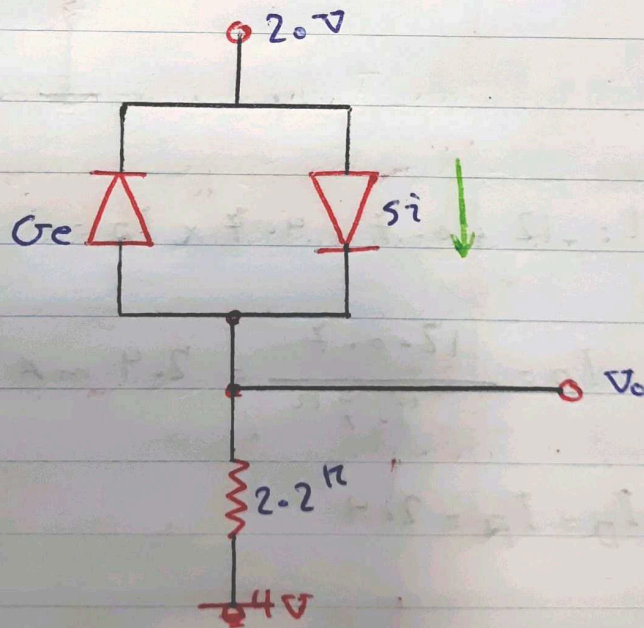 20V
Ge
Si
Vo
2.2K
4V